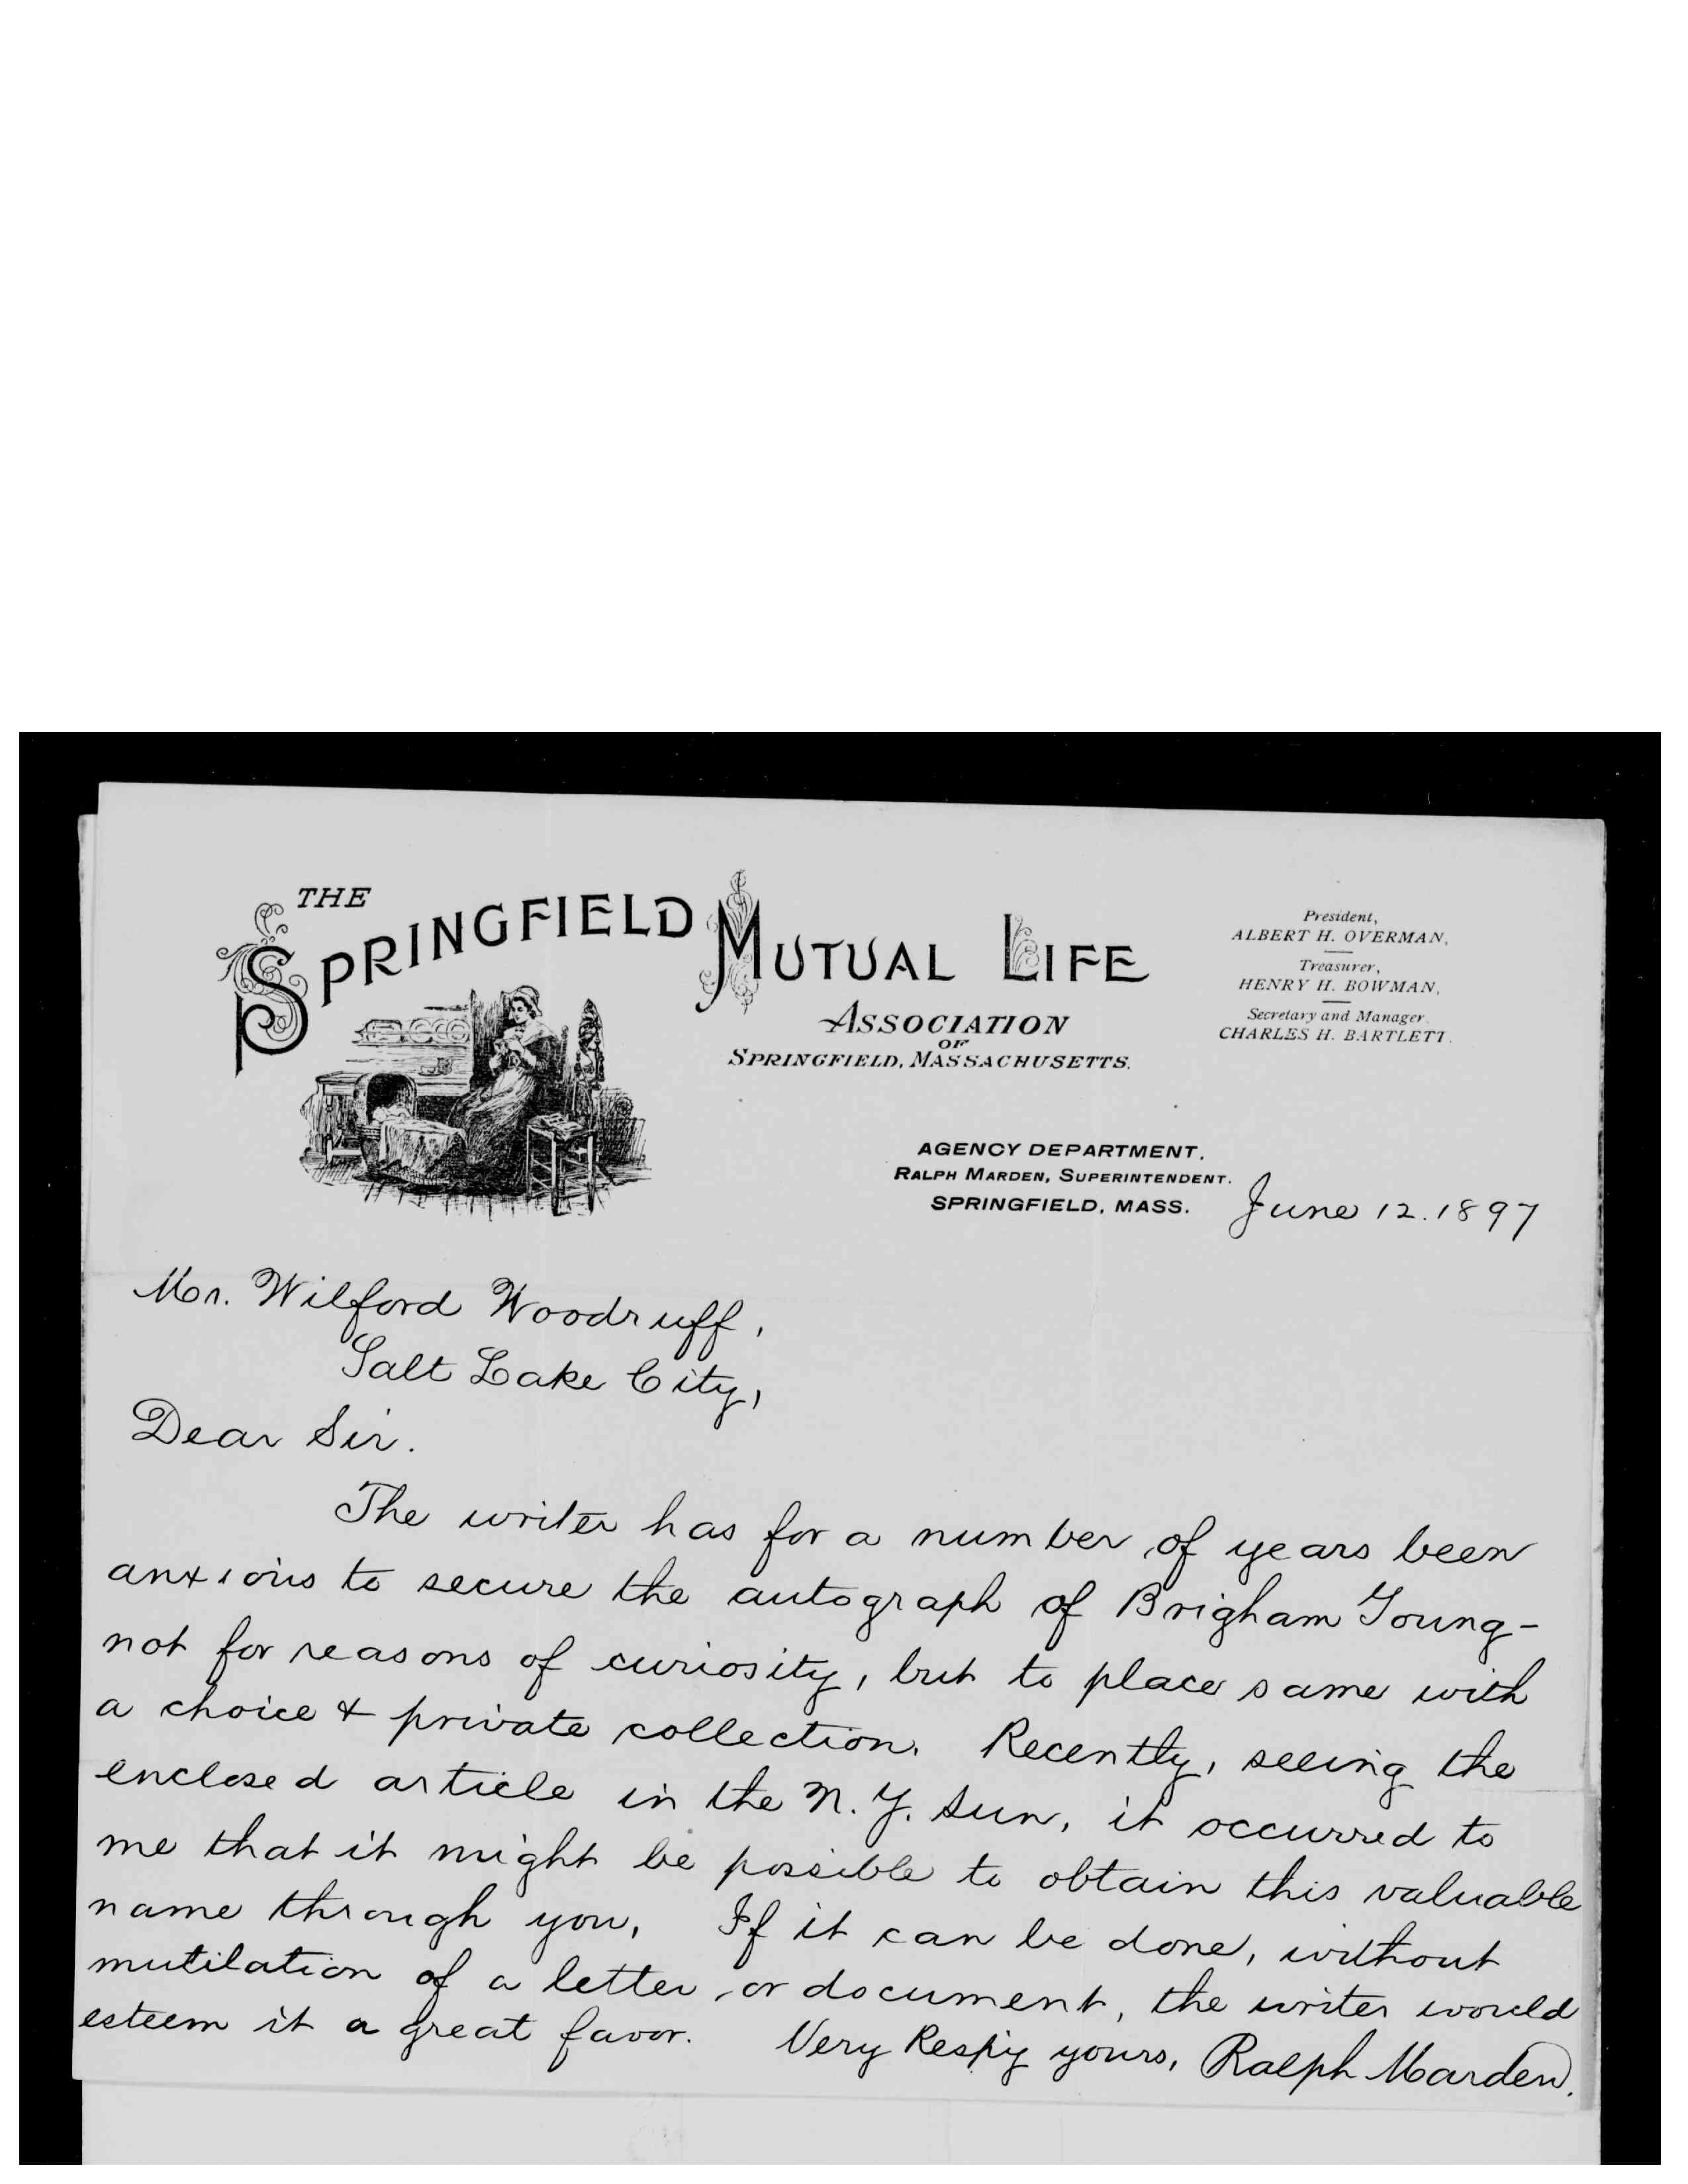 THE
SPRINGFIELD MUTUAL LIFE
ASSOCIATION
OF
SPRINGFIELD, MASSACHUSETTS.
President,
ALBERT H. OVERMAN,
Treasurer,
HENRY H. BOWMAN,
Secretary and Manager.
CHARLES H. BARTLETT.
AGENCY DEPARTMENT.
RALPH MARDEN, SUPERINTENDENT.
SPRINGFIELD, MASS. June 12. 1897
Mr. Wilford Woodruff,
Salt Lake City,
Dear Sir.
The writer has for a number of years been
anxious to secure the autograph of Brigham Young-
not for reasons of curiosity, but to place same with
a choice & private collection. Recently, seeing the
enclosed article in the N.Y. Sun, it occurred to
me that it might be possible to obtain this valuable
name through you, If it can be done, without
mutilation of a letter, or document, the writer would
esteem it a great favor. Very Respy yours, Ralph Marden.